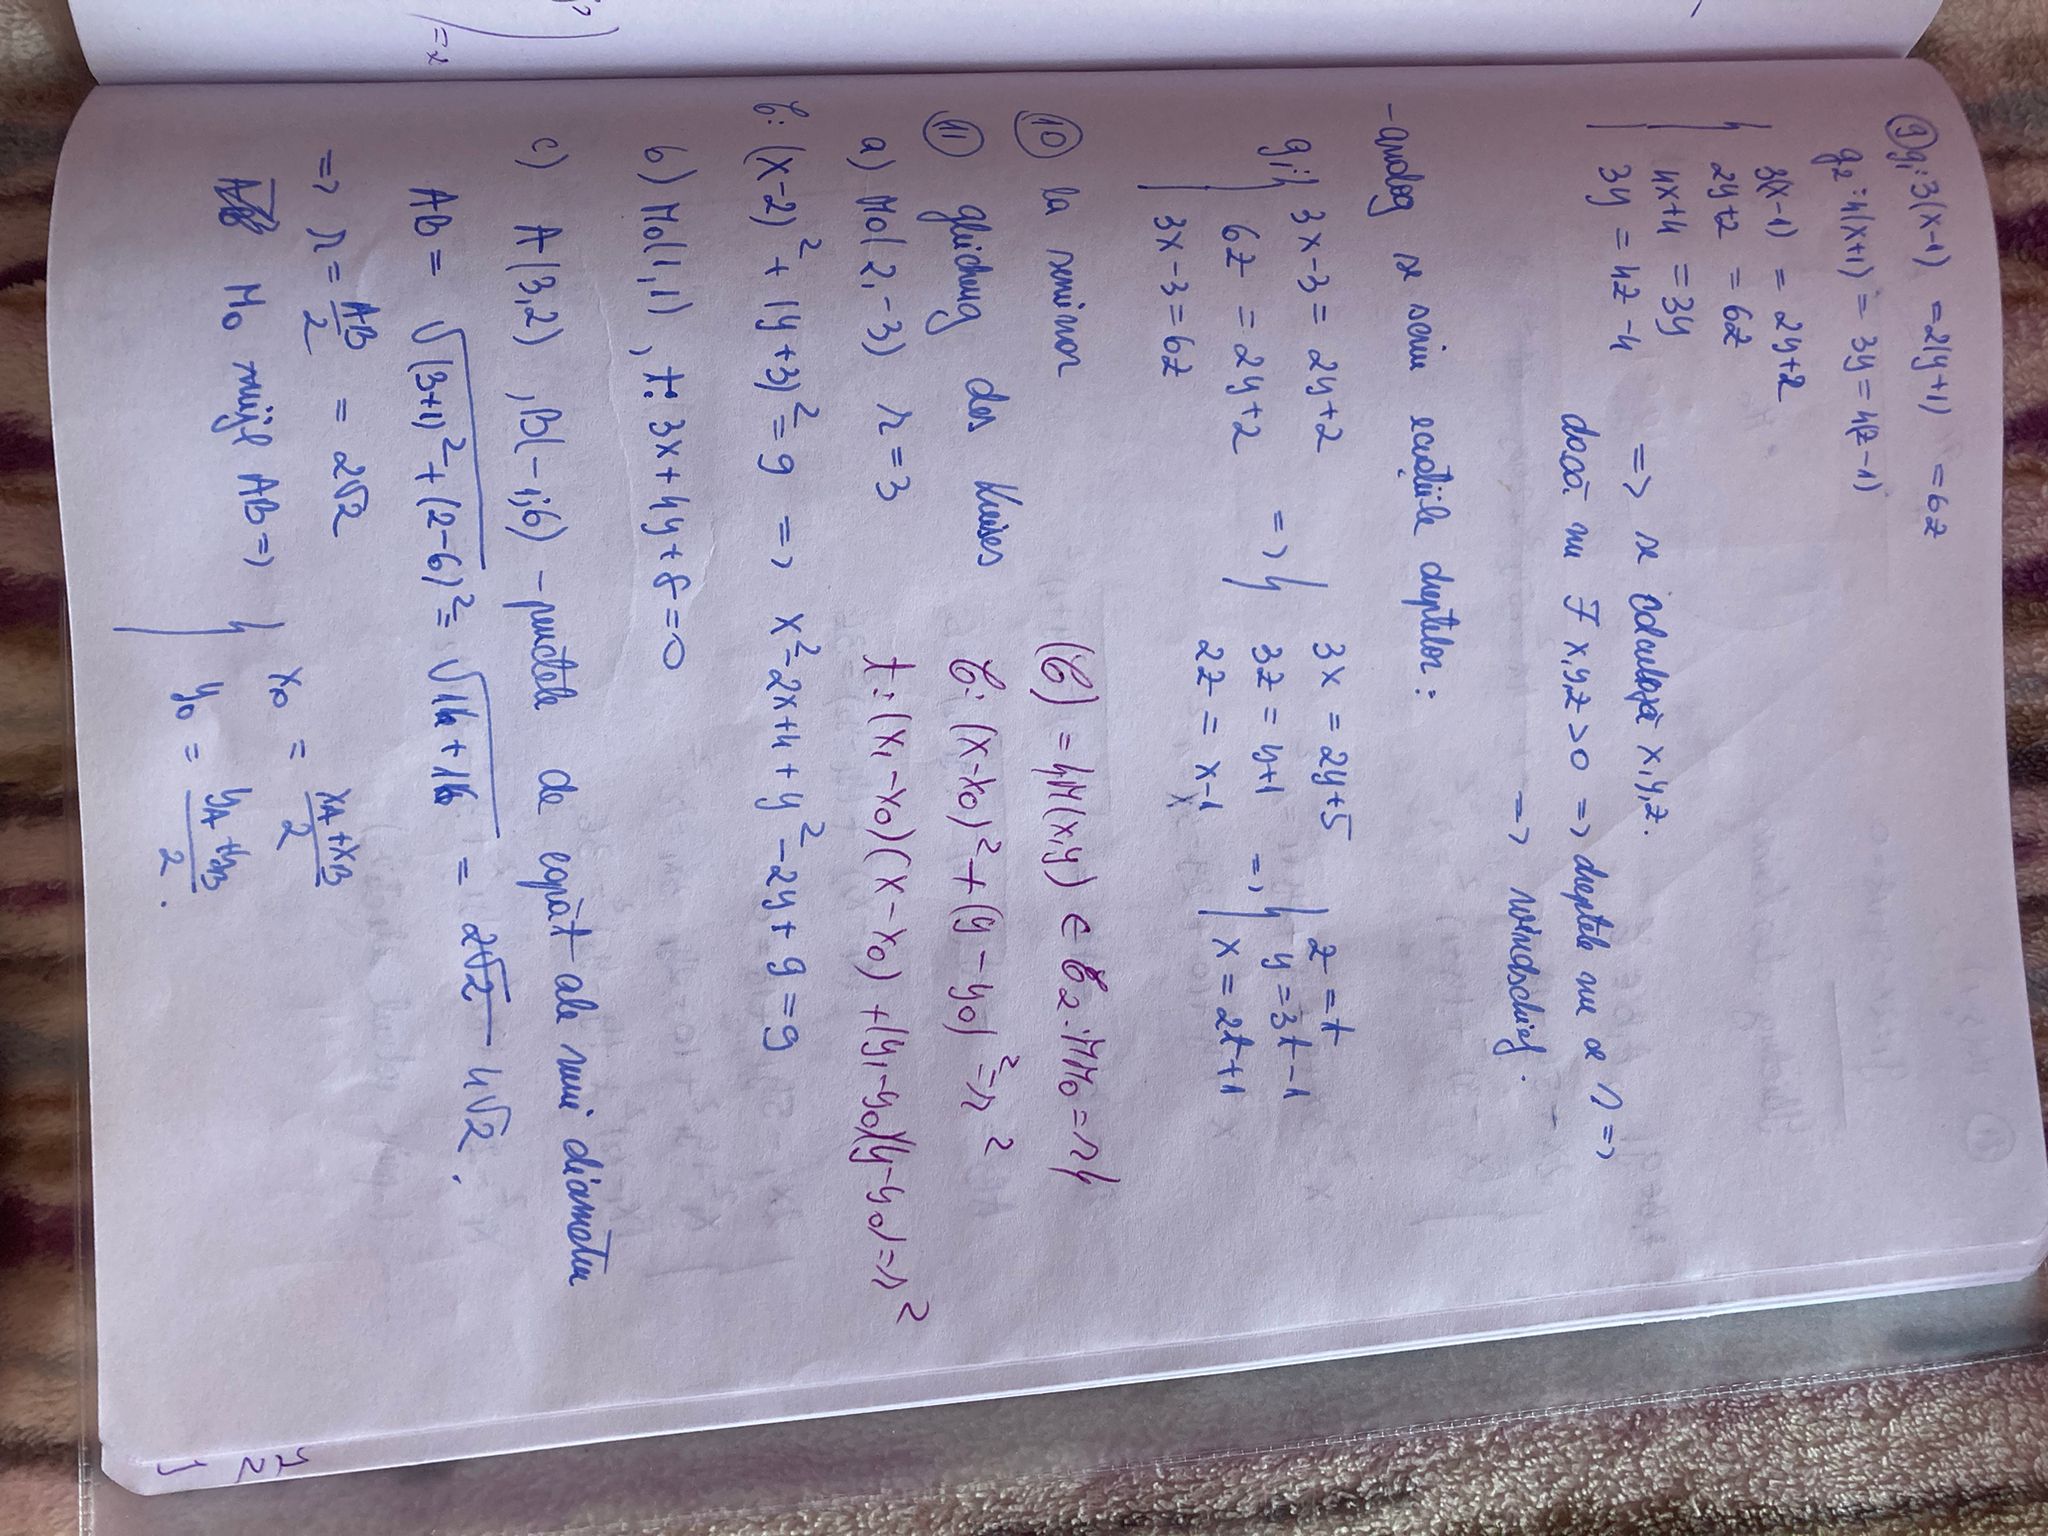 9 g₁: 3(x-1) = 2(y+1) = 6z
g₂: 4(x+1) = 3y = 4(z-1)
{ 3(x-1) = 2y+2
2y+2 = 6z
4x+4 = 3y
3y = 4z-4 => se calculează x,y,z.
dacă nu ∃ x,y,z >0 => dreptele nu se ∩ =>
=> windschief.
- analog se scriu ecuațiile dreptelor:
g₁: { 3x-3 = 2y+2 => { 3x = 2y+5 => { z = t
6z = 2y+2 3z = y+1 y = 3t-1
3x-3 = 6z 2z = x-1 x = 2t+1
10 la seminar (C) = {M(x,y) ∈ E₂: MM₀ = r}
11 gleichung des Kreises C: (x-x₀)² + (y-y₀)² = r²
a) M₀(2,-3) r = 3 t: (x₁-x₀)(x-x₀) + (y₁-y₀)(y-y₀) = r²
C: (x-2)² + (y+3)² = 9 => x²-2x+4+y²-2y+9 = 9
b) M₀(1,1), t: 3x+4y+8=0
c) A(3,2), B(-1;6) - punctele de capăt ale unui diametru
AB = √(3+1)²+(2-6)² = √16+16 = 2√2 4√2.
=> r = AB/2 = 2√2
AB M₀ mijl AB => { x₀ = xA+xB/2
y₀ = yA+yB/2.